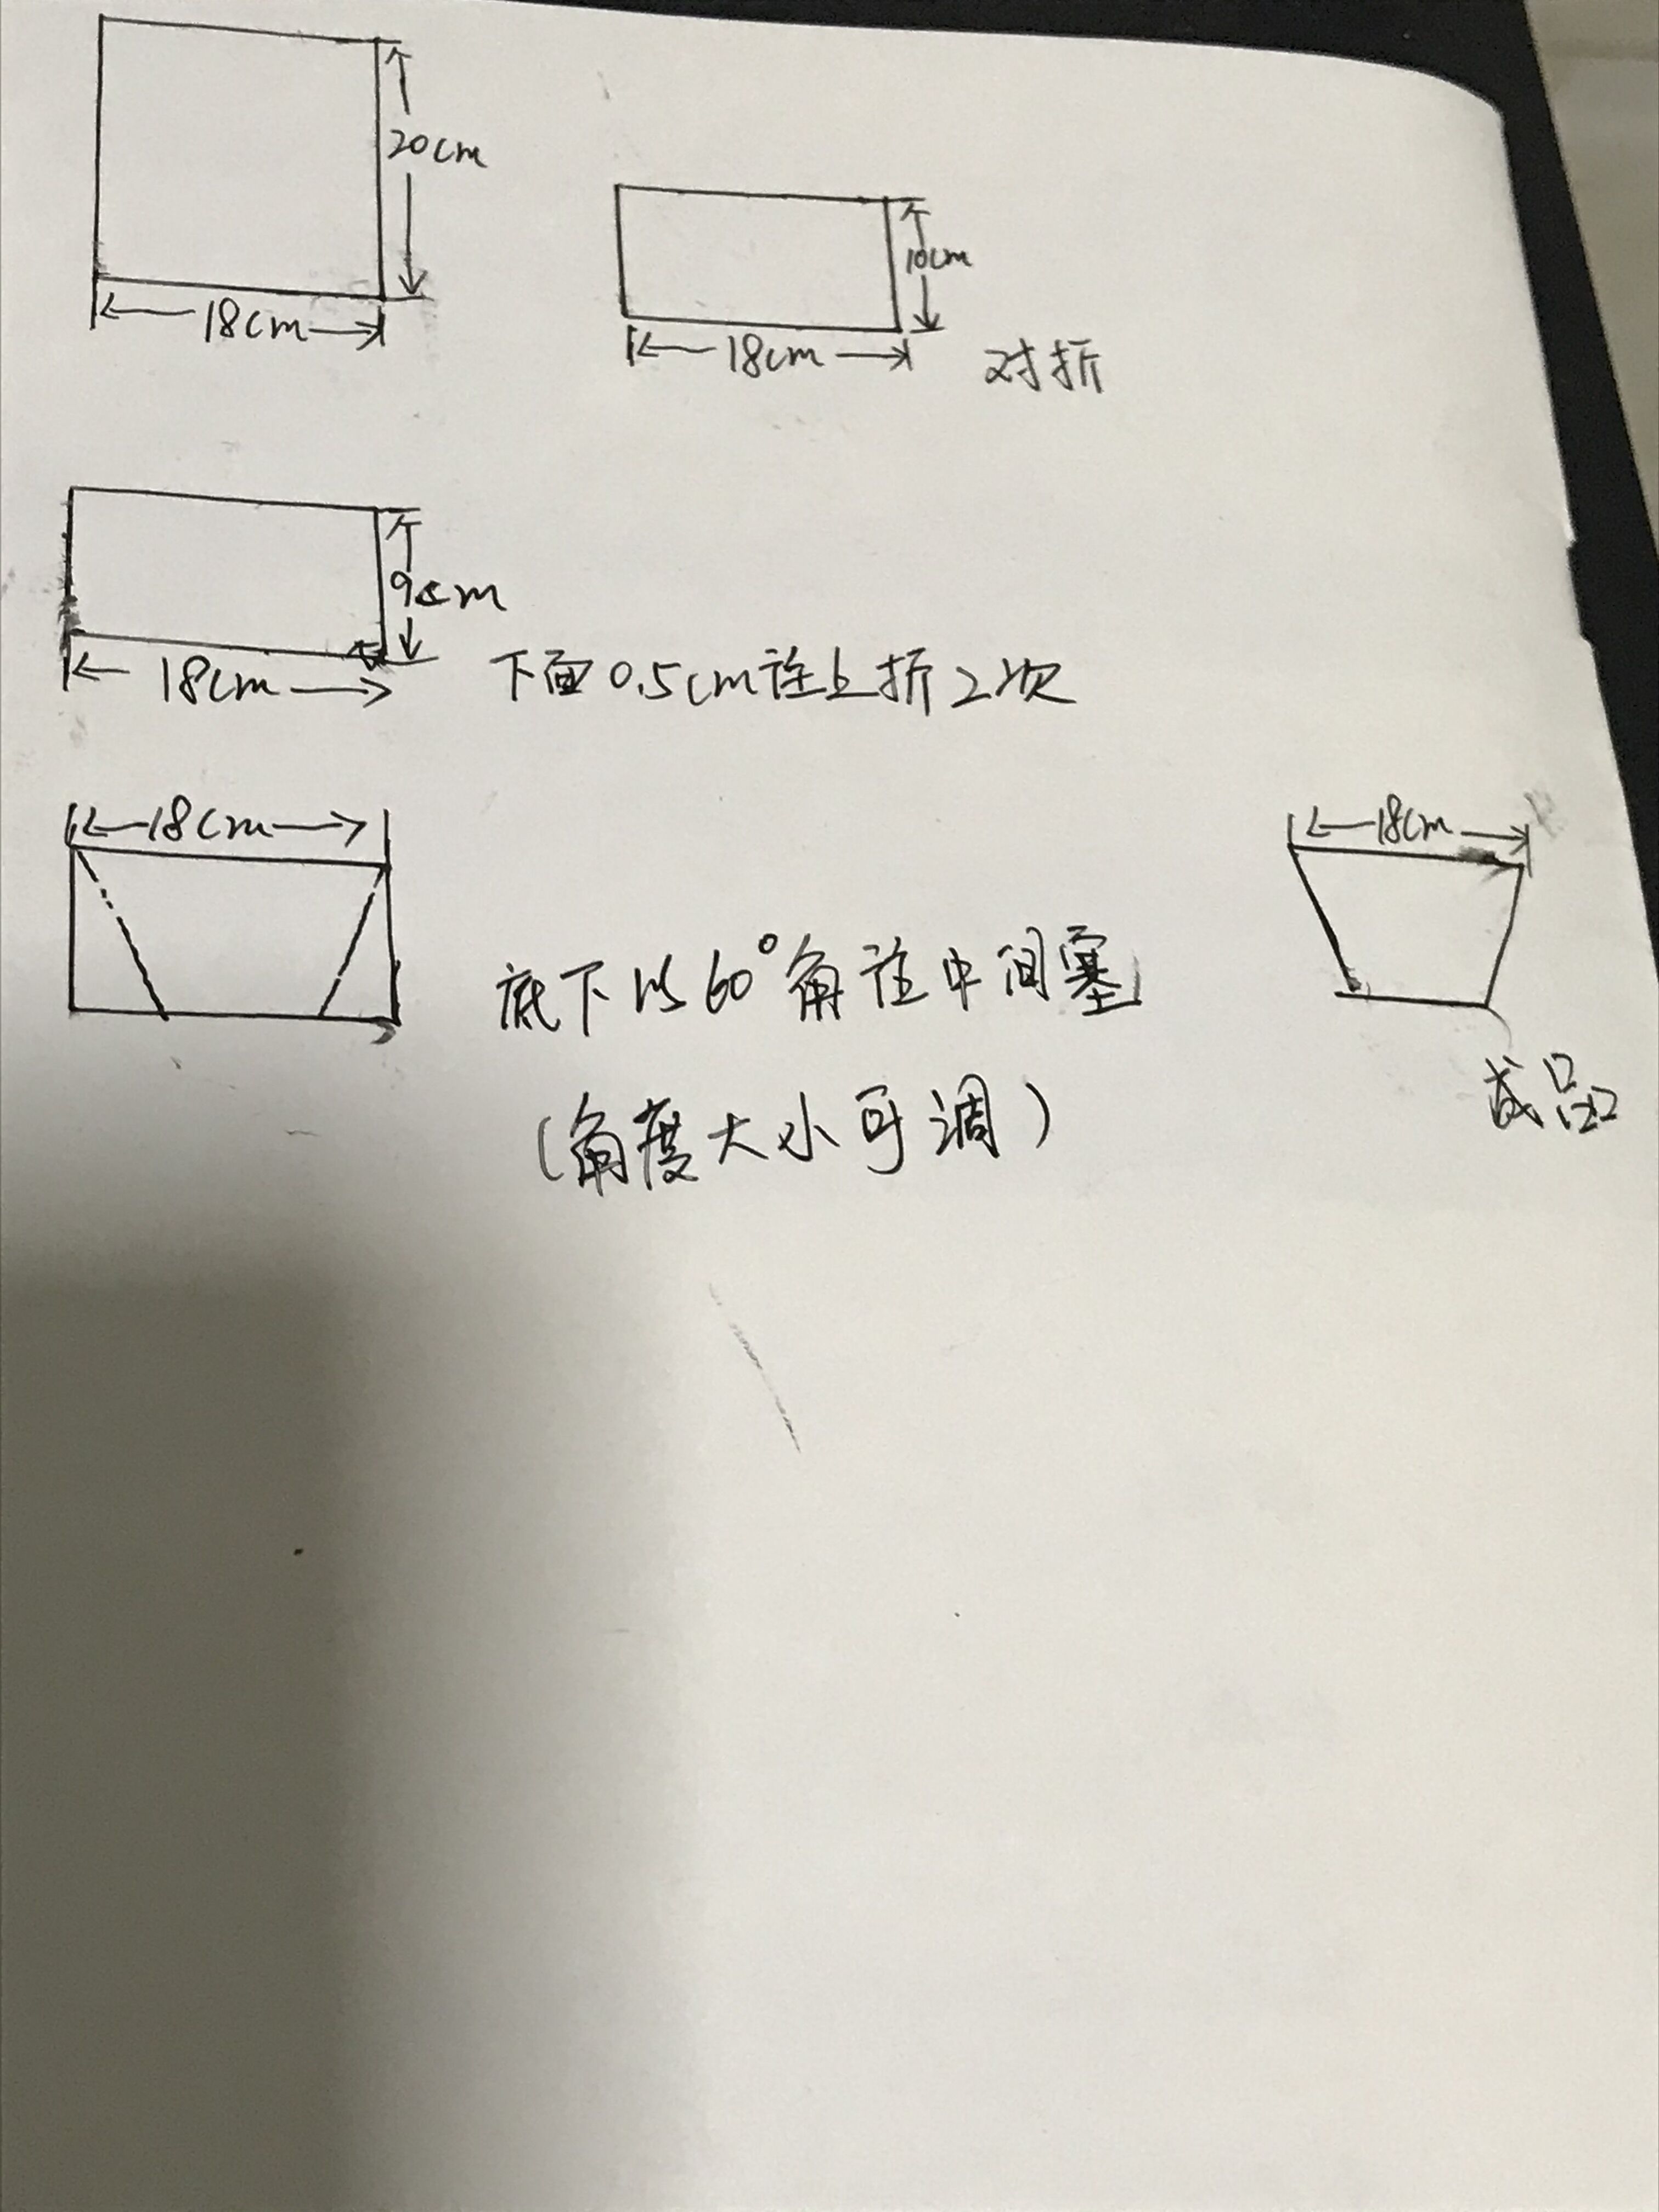 20cm
18cm
10cm
18cm
对折
9cm
18cm
下面0.5cm往上折2次
18cm
底下以60°角往中间塞
(角度大小可调)
18cm
成品